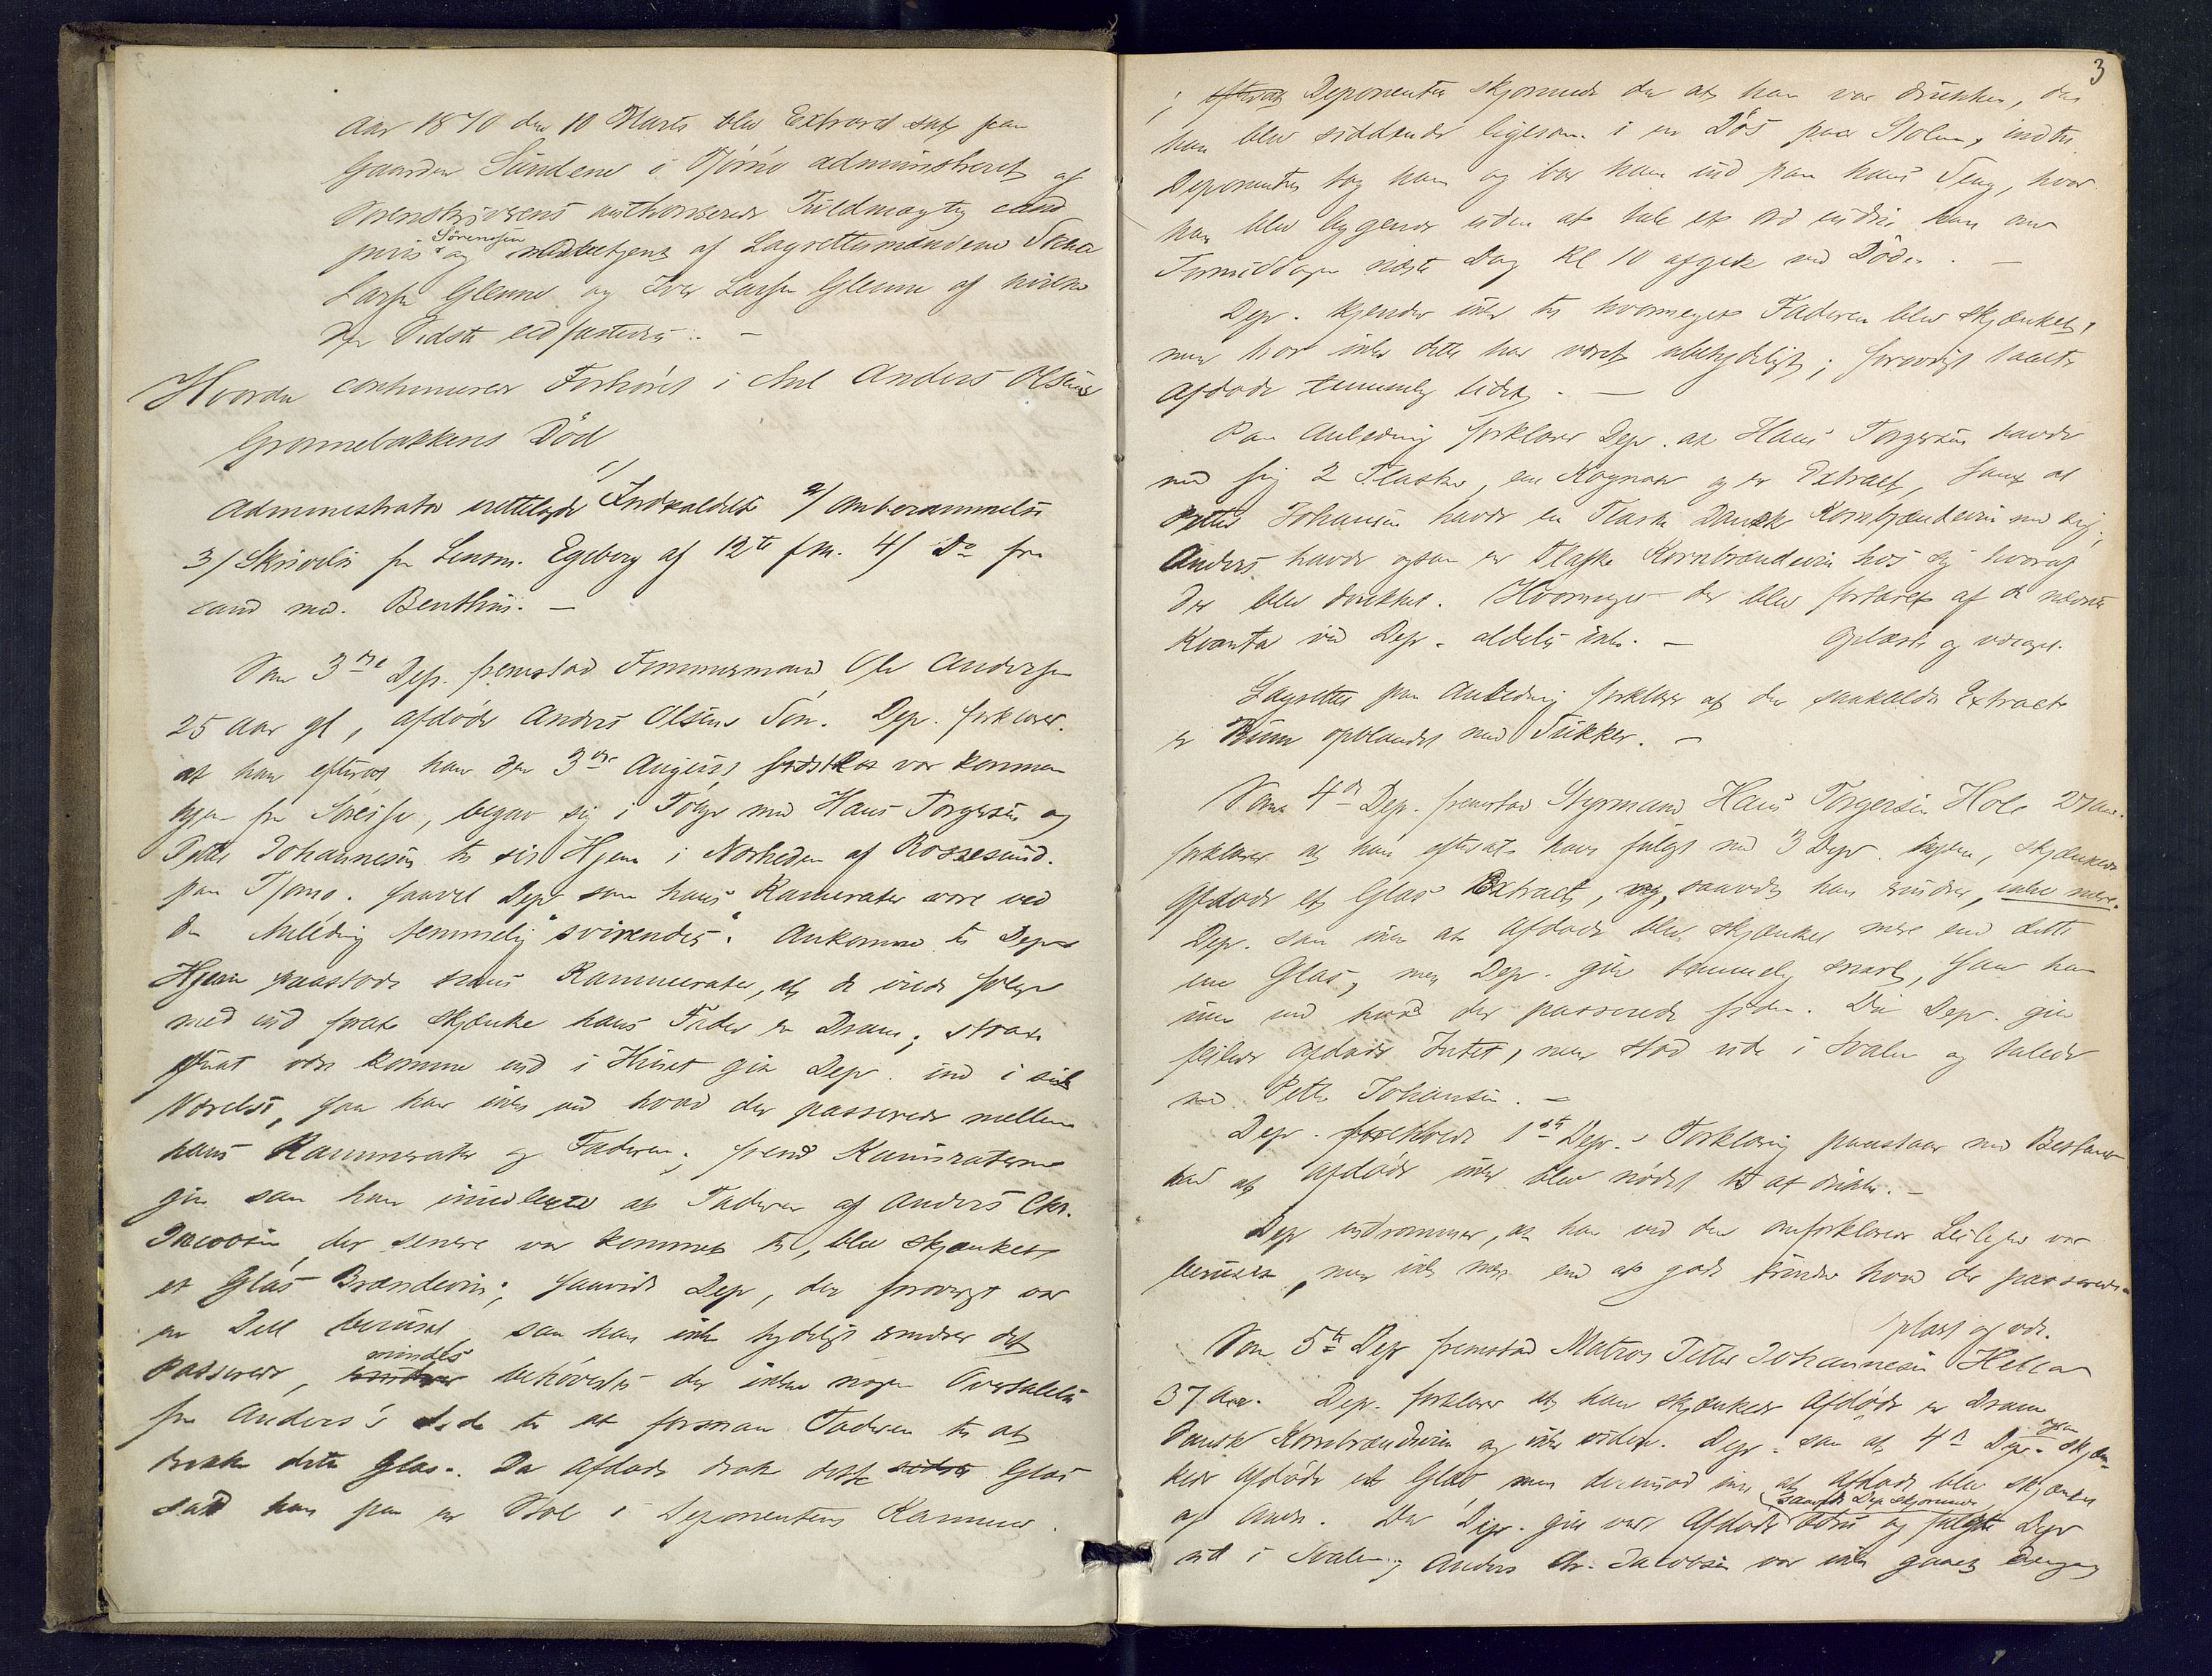 Aar 1870 den 10 Marts blev Extraret sat paa
Gaarden Sundene i Tjømø administreret af
Sorenskriverens authoriserede Fuldmægtig cand
juris Sörensen og medbetjent af Lagrettemændene
Larsen Glenne og Iver Larsen Glenne af hvilke
den Sidste edfæstedes. —
Hvorda continueres Forhöret i Anl Anders Olsens
Grønnebakkens Död
Administrator irettelagde 1/ Indkaldelse 2/ Anberammelse
3/ Skrivelse fra Lensm. Egeberg af 12te f M. 4/ Do fra
cand med. Benthin. —
Som 3die Dep. fremstod Tømmermand Ole Andersen
25 Aar gl, afdöde Anders Olsens Sön. Dep. forklarer
at han efterat han den 3die August sidstl var kommen
hjem fra Söreise, begav sig i Følge med Hans Torgersen og
Petter Johannesen til sit Hjem i Nærheden af Rossesund
paa Tjømø. Saavel Dep som hans Kamerater vare ved
den Anledning temmelig "svirendes". Ankomne til Deps
Hjem paastode hans Kammerater, at de vilde følge
med ind forat skjænke hans Fader en Dram; strax
efterat være komne ind i Huset gik Dep. ind i sit
Værelse, saa han ikke ved hvad der passerede mellem
hans Kammerater og Faderen; førend Kameraterne
gik saa han imidlertid at Faderen af Anders Chr.
Jacobsen, der senere var kommet til, blev skjænket
et Glas Brændeviin; saavidt Dep, der forövrigt var
en Deel beruset, saa han ikke tydeligt erindrer det
Passerede, mindes behövedes der ikke nogen Overtalelse
fra Anders's Side til at formaa Faderen til at
drikke dette Glas. Da Afdöde drak dette sidste Glas
sad han paa en Stol i Deponentens Kammer.
3
; efterat Deponenten skjønnede da at han var drukken, da
han blev siddende ligesom i en Dös paa Stolen, indtil
Deponenten tog ham og bar ham ind paa hans Seng, hvor
han blev liggende uden at tale et Ord indtil han om
Formiddagen næste Dag Kl 10 afgik ved Döden. —
Dep. kjender ikke til hvormeget Faderen blev skjænket,
men tror ikke dette har været ubetydeligt; forøvrigt taalte
Afdöde temmelig lidet. —
Paa Anledning forklarer Dep. at Hans Torgersen havde
med sig 2 Flasker, en Kognak og en Extract, samt at
Petter Johansen havde en Flaske Dansk Kornbrændeviin med sig;
Anders havde ogsaa en Flaske Kornbrændeviin hos sig hvoraf
der blev drukket. Hvormeget der blev fortæret af de nævnte
Kvanta ved Dep. aldeles ikke. — Oplæst og vedtaget.
Lagretten paa Anledning forklarer at den saakaldte Extract
er Rum opblandet med Sukker. —
Som 4de Dep. fremstod Styrmand Hans Torgersen Hole 27 Aar.
forklarer at han efterat have fulgt med 3 Dep. hjem, skjænkede
Afdöde et Glas Extract, og, saavidt han erindrer, ikke mere.
Dep. saa ikke at Afdöde blev skjænket mere end dette
ene Glas, men Dep. gik temmelig snart, saa han
ikke ved hvad der passerede siden. Da Dep. gik
feilede Afdöde Intet, men stod ude i Svalen og talede
med Petter Johansen. —
Dep. foreholdt 1ste Dep.s Forklaring paastaar med Bestemt-
hed at Afdöde ikke blev nödet til at drikke. —
Dep indrømmer, at han ved den omforklarede Leilighed var
beruset, men ikke mere end at godt erindre hvad der passerede.
Oplæst og vedt.
Som 5te Dep fremstod Matros Petter Johannesen Hella
37 Aar. Dep. forklarer at han skjænkede Afdöde en Dram
Dansk Kornbrændeviin og ikke videre. Dep. saa at 4de Dep. ogsaa skjæn-
kede Afdöde et Glas, men derimod ikke at Afdöde blev skjænket
af Andre. Da Dep. gik var Afdöde saavidt Dep skjønnede ædru og fulgte Dep
ud i Svalen; Anders Chr. Jacobsen var ikke gaaet dengang